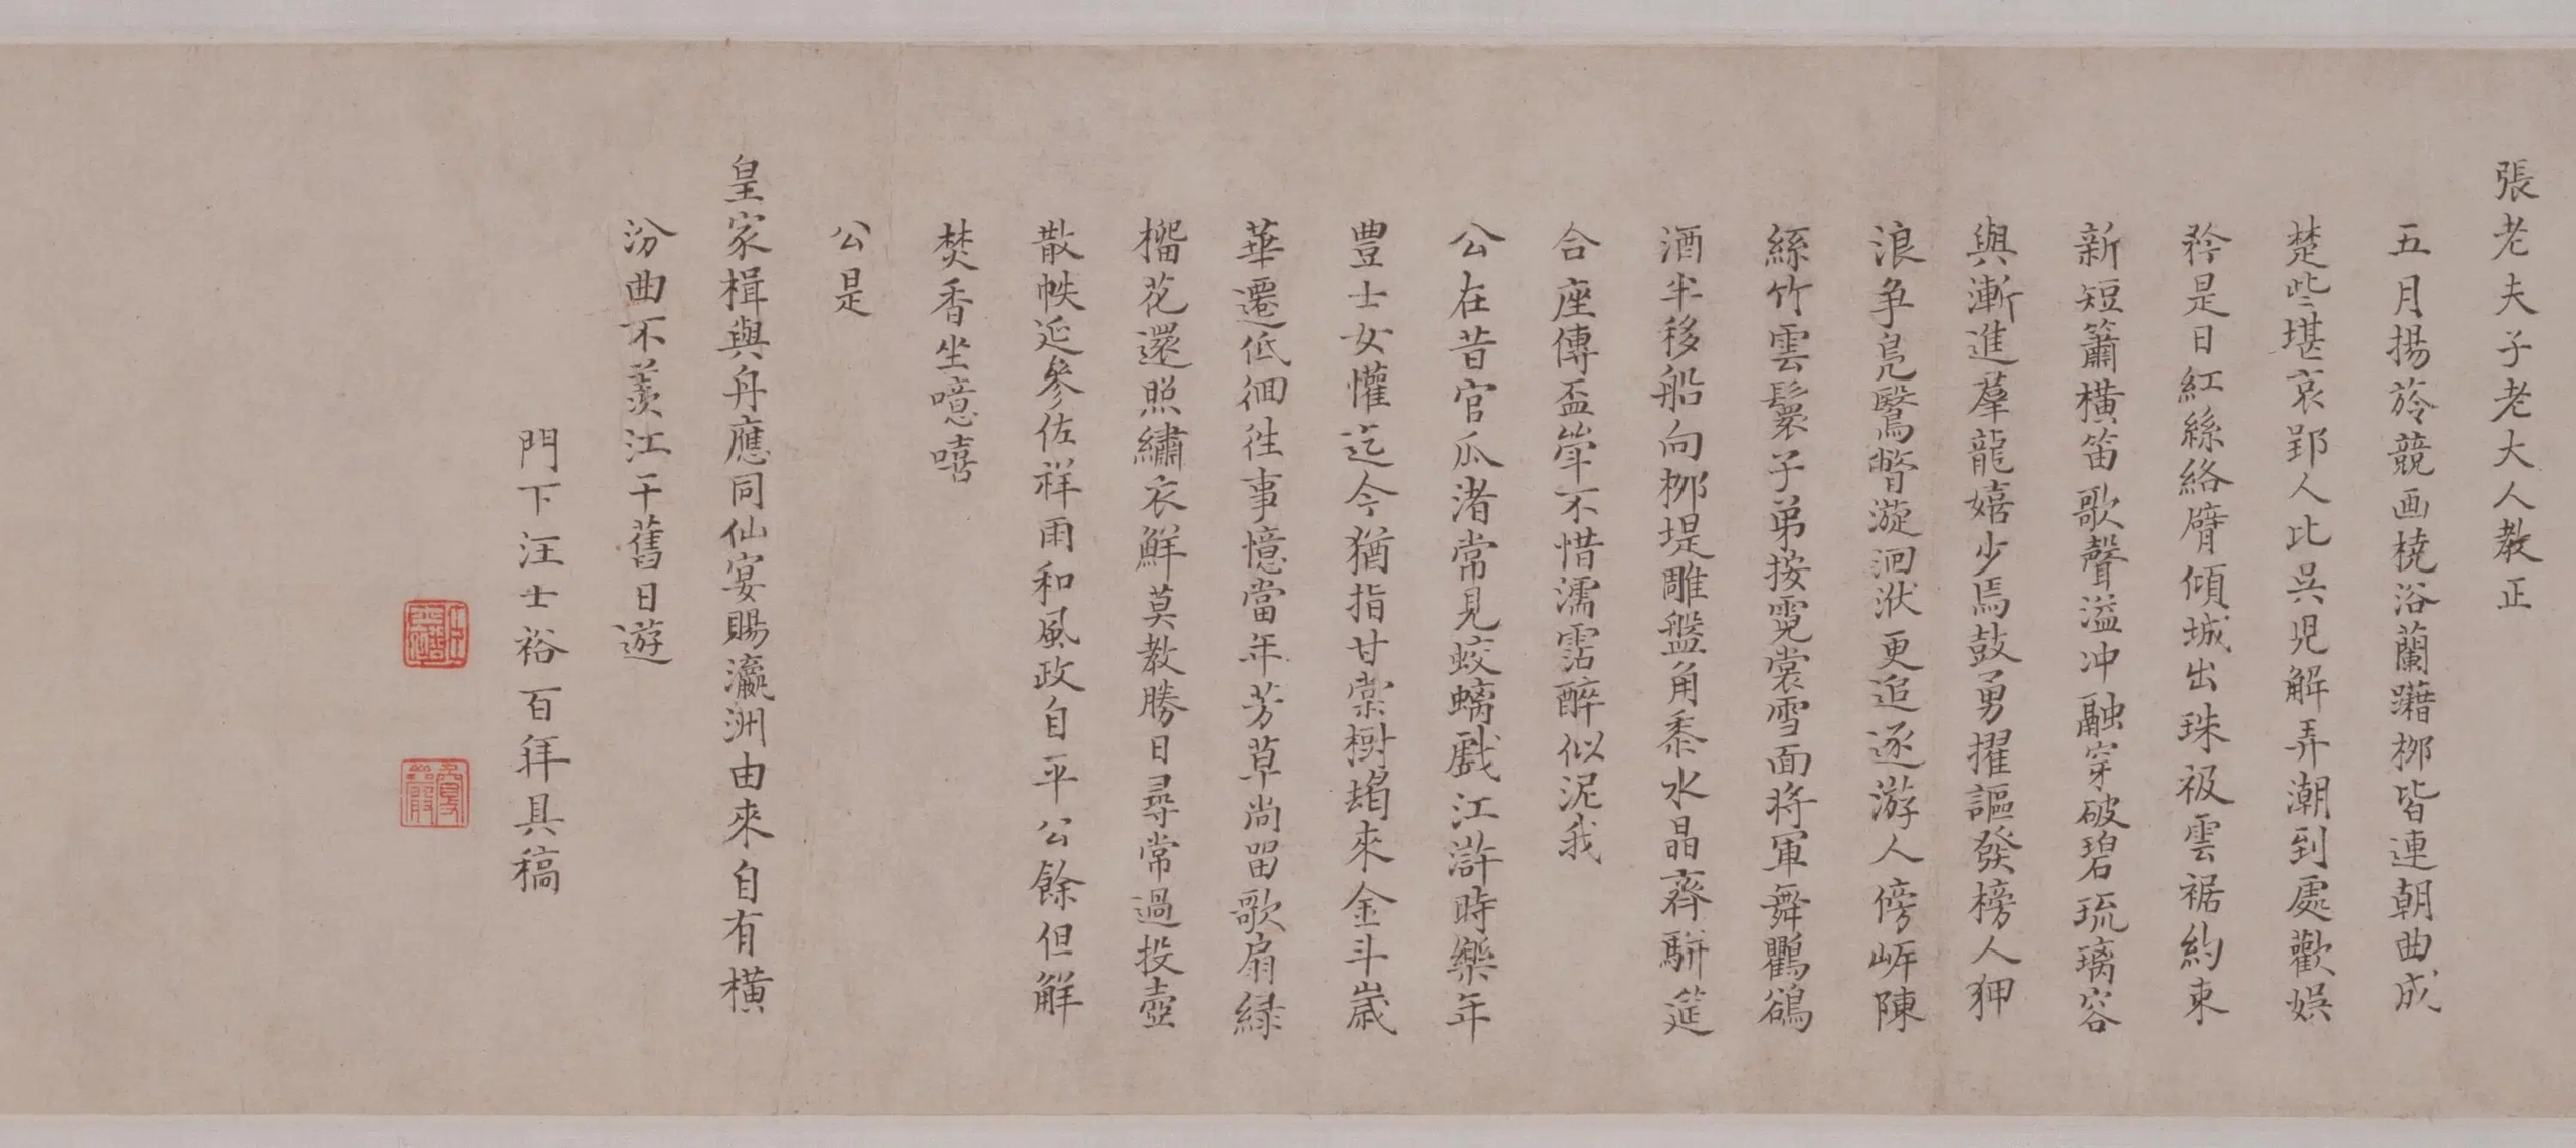 張老夫子老大人教正
五月揚舲競画橈浴蘭躤栁皆連朝曲成
楚些堪哀郢人比吳兒解弄潮到處歡娯
矜是日紅絲絡臂傾城出珠衱雲裾約束
新短簫橫笛歌聲溢冲融穿破碧琉璃容
與漸進羣龍嬉少焉鼓勇擢謳發榜人狎
浪争鳧鷖瞥漩洄洑更追逐游人傍岍陳
絲竹雲鬟子弟按霓裳雪面將軍舞鸜鵒
酒半移船向栁堤雕盤角黍水晶齊騈筵
合座傳盃斝不惜濡霑醉似泥我
公在昔官瓜渚常見蛟螭戲江滸時樂年
豊士女懽迄今猶指甘棠樹朅來金斗歲
華遷低徊徃事憶當年芳草尚畱歌扇緑
榴花還照繡衣鮮莫教勝日尋常過投壺
散帙延參佐祥雨和風政自平公餘但觧
焚香坐噫嘻
公是
皇家楫與舟應同仙宴賜瀛洲由來自有橫
汾曲不羨江干舊日遊
門下汪士裕百拜具稿